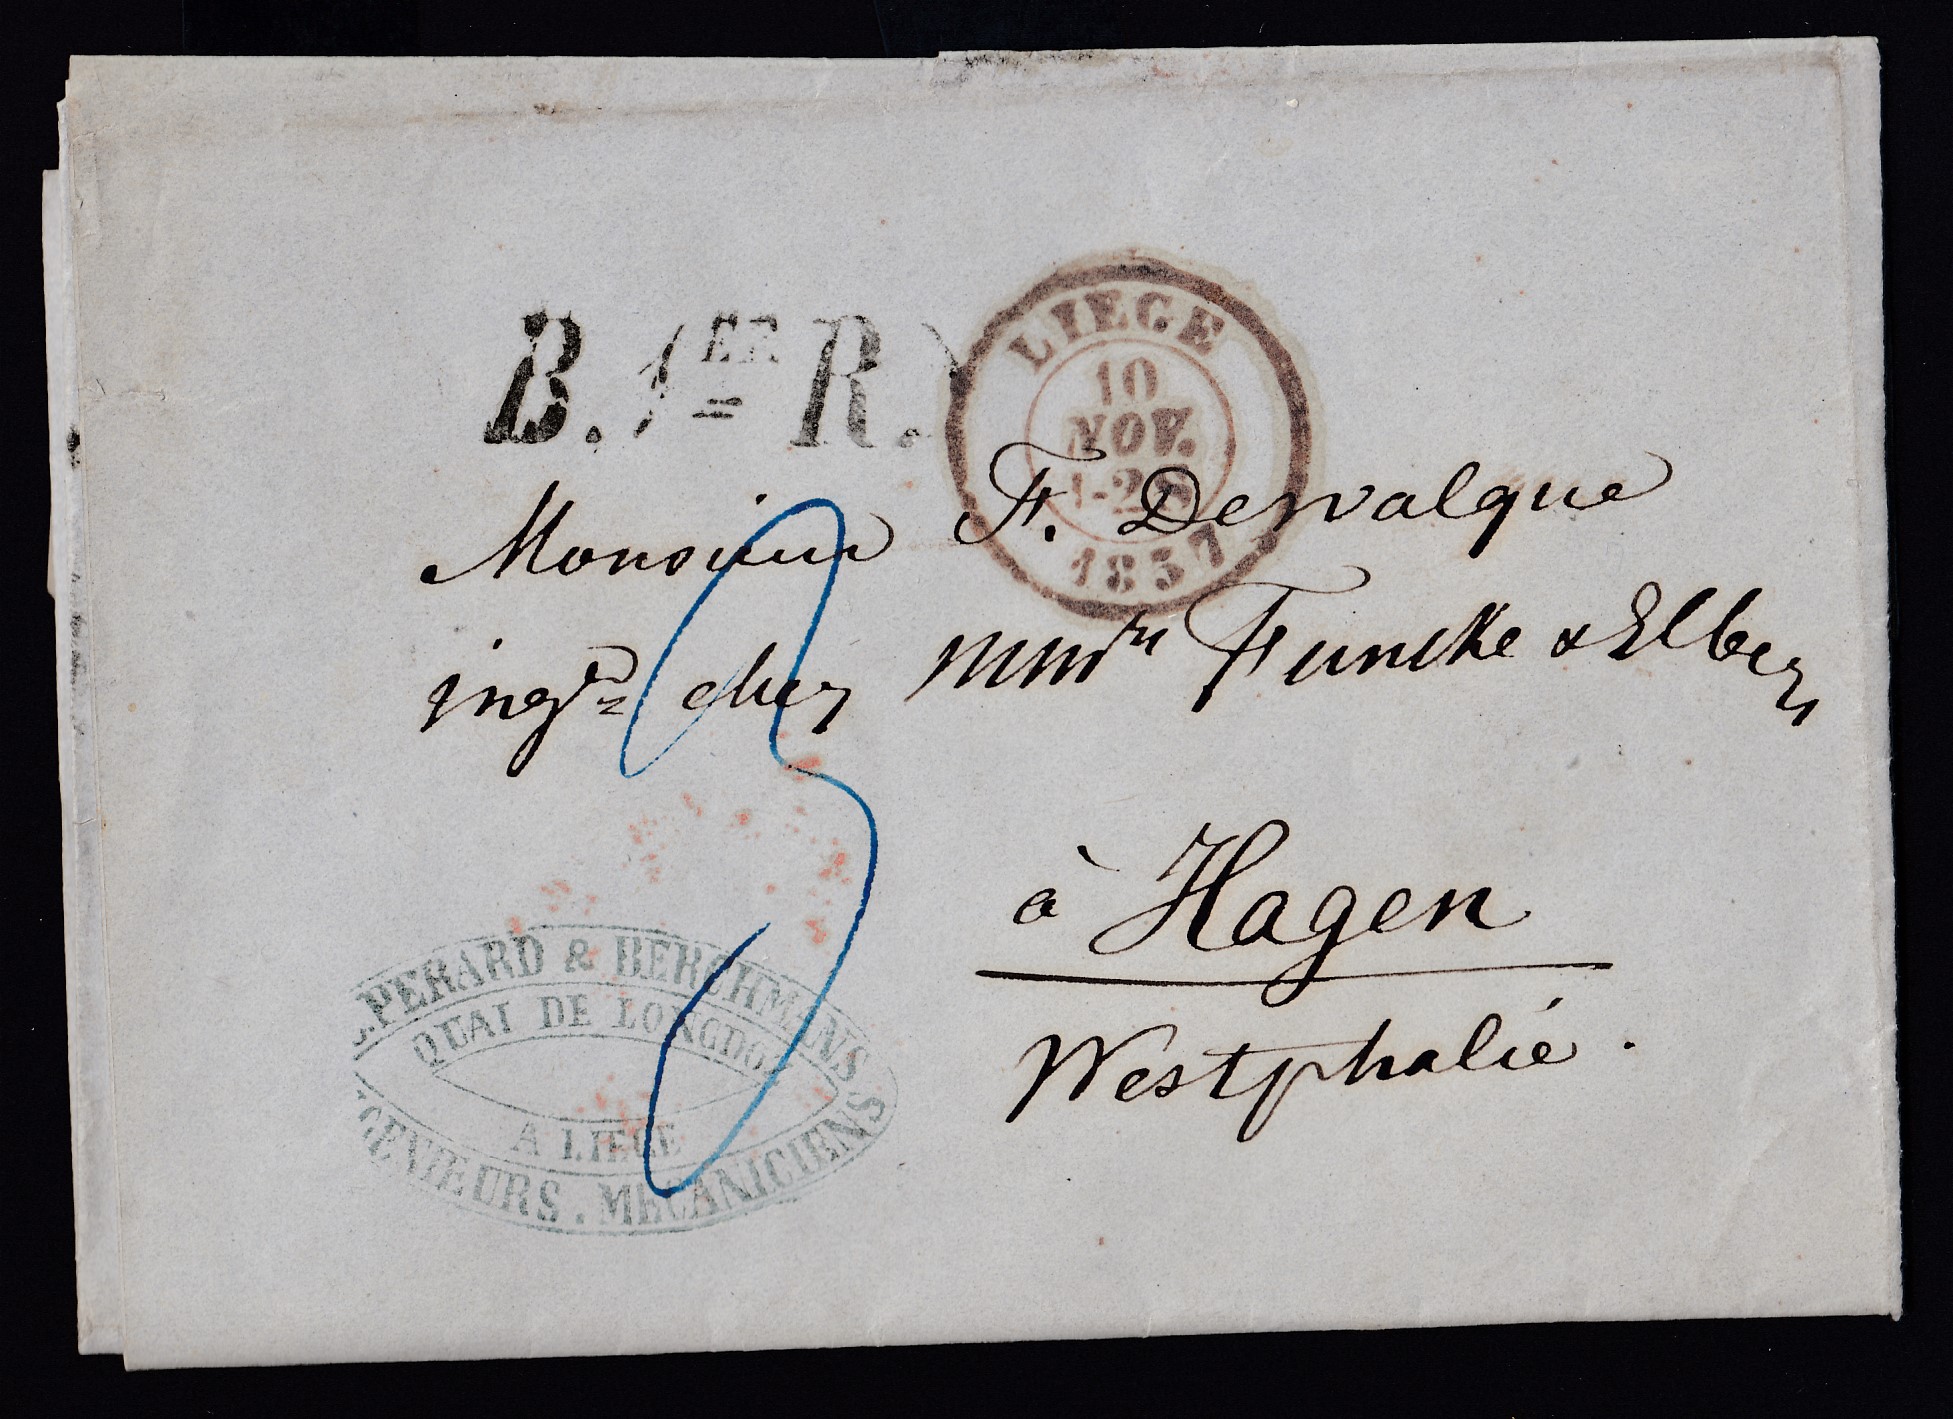 B. 1ER R.
LIEGE
10
NOV.
1857
Monsieur F. Dewalque
ingr chez MMrs Funcke & Elbers
à Hagen
Westphalie.
3
PERARD & BERCHMANS
QUAI DE LONGDOZ
A LIEGE
GENIEURS. MECANICIENS